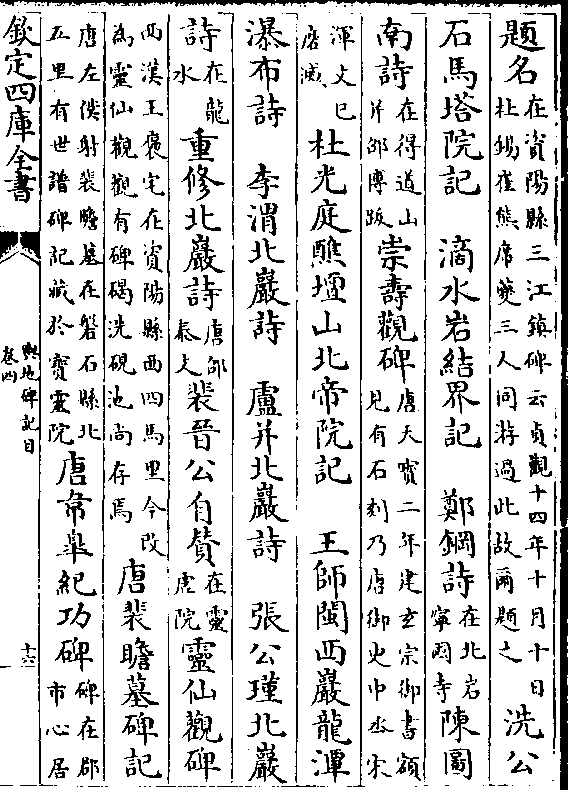 題名在資陽縣三江鎮碑云貞觀十四年十月十日杜錫崔熊席夔三人同游過此故爾題之洗公
石馬塔院記 滴水岩結界記 鄭鋼詩在北岩寧國寺陳圖
南詩在得道山并邵博跋崇壽觀碑唐天寶二年建玄宗御書額見有石刻乃唐御史中丞宋
渾文已磨滅杜光庭醮壇山北帝院記 王師閩西巖龍潭
瀑布詩 李渭北巖詩 盧并北巖詩 張公瑾北巖
詩在龍水重修北巖詩唐邵㤗文裴晉公自賛在靈虎院靈仙觀碑
西漢王褒宅在資陽縣西四馬里今改為靈仙觀觀有碑碣洗硯池尚存焉唐裴瞻墓碑記
唐左僕射裴瞻墓在磐石縣北五里有世譜碑記藏於寳靈院唐韋臯紀功碑碑在郡市心居
欽定四庫全書
輿地碑記目
卷四
十六